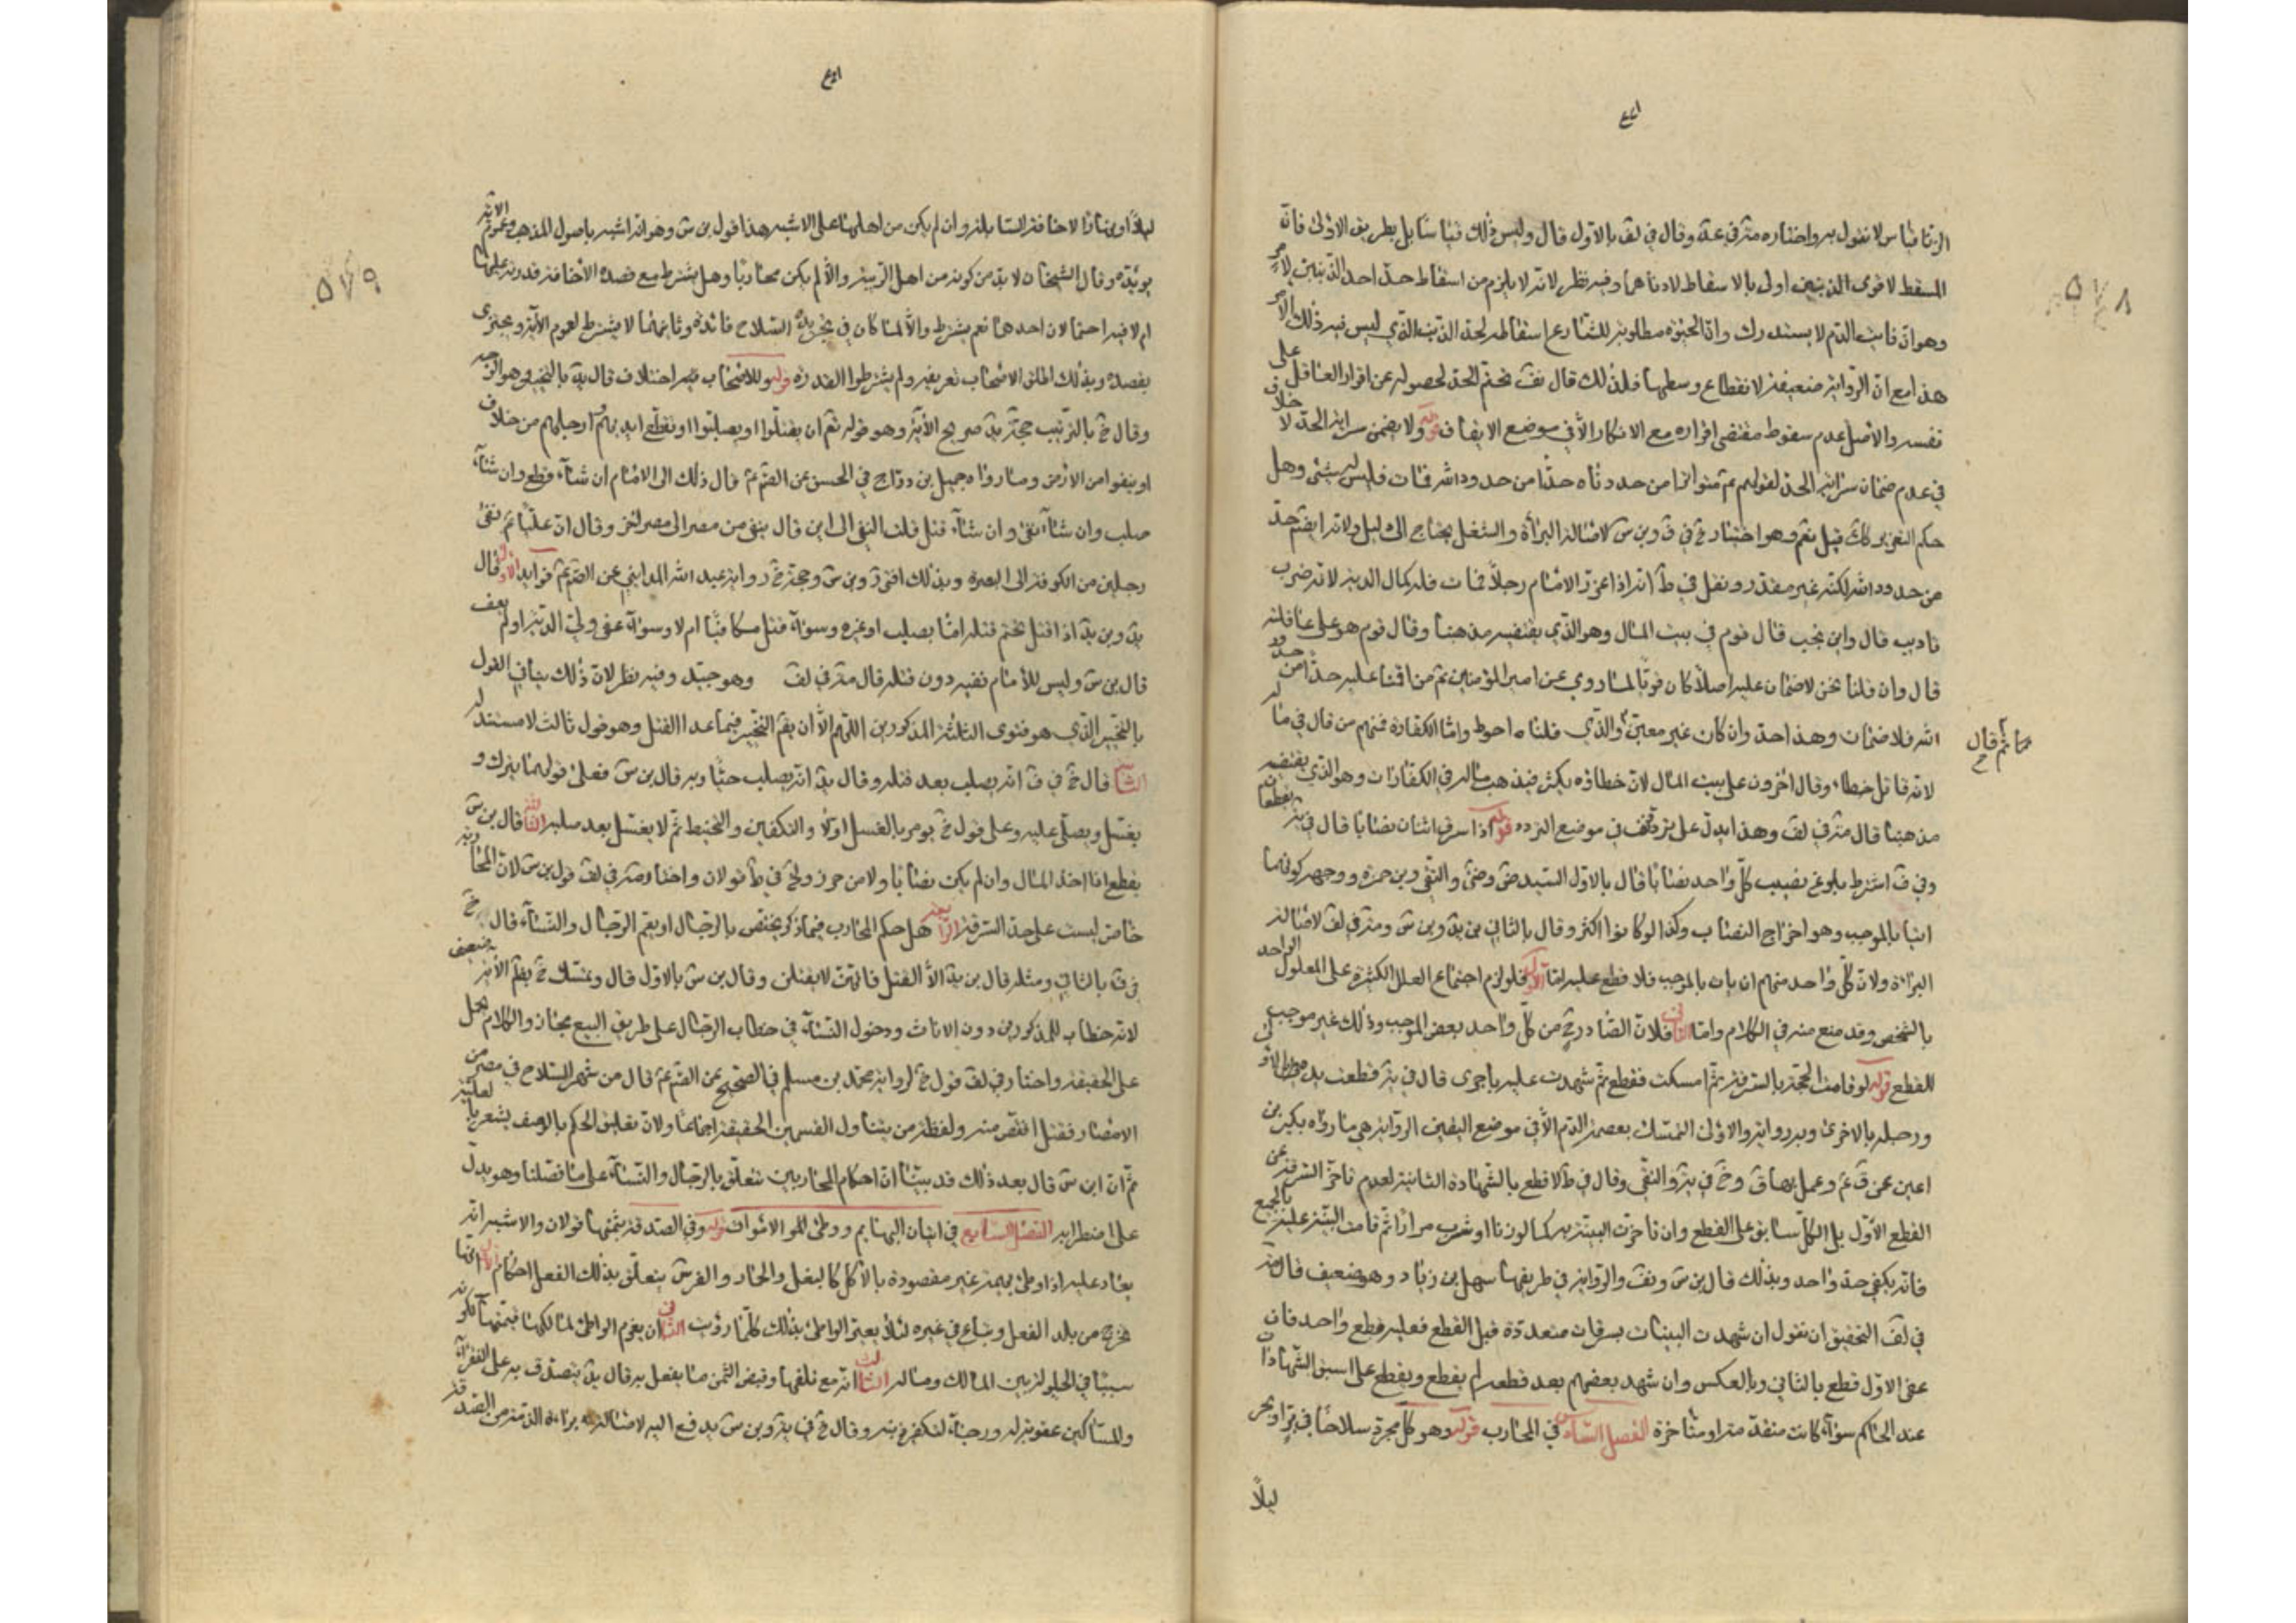 الزنا قياس لا نقول به واختاره متر في عد وقال في لف بالأول قال وليس ذلك قياسا بل بطريق الاولى فانه
المسقط لاقوى الذنبين اولى بالاسقاط لادناهما وفيه نظر لانه لا يلزم من اسقاط حد احد الذنبين
وهو ان فايت الدم لا يستدرك وان الحيوة مطلوبة للشارع اسقاطه لحد الذنب الذي ليس فيه ذلك
هذا مع ان الرواية ضعيفة لانقطاع وسطها فلذلك قال نف بتحتم الحد لحصوله عن اقرار العاقل على
نفسه والاصل عدم سقوط مقتضى اقراره مع الانكار الا في موضع الايقاف قوله ولا يضمن سراية الحد لا خلاف
في عدم ضمان سراية الحد لقولهم ع من حددناه حدا من حدود الله فمات فليس له شئ وهل
حكم التعزير كك قيل نعم وهو اختيار خ في ف وبن س لاصالة البراءة والشغل يحتاج الى دليل ولانه ايضا حد
من حدود الله لكنه غير مقدر ونقل في ط انه اذا عزر الامام رجلا فمات فله كمال الدية لانه ضرب
تاديب قال واين يجب قال قوم في بيت المال وهو الذي يقتضيه مذهبنا وقال قوم هو على عاقلته
قال وان قلنا نحن لا ضمان عليه اصلا كان قويا لما روي عن امير المؤمنين ع من اقمنا عليه حدا من حدود
الله فلا ضمان وهذا حد وان كان غير معين والذي قلناه احوط واما الكفارة فمنهم من قال في ماله
لانه قاتل خطا وقال اخرون على بيت المال لان خطاؤه يكثر فيذهب ماله في الكفارات وهو الذي يقتضيه
مذهبنا قال متر في لف وهذا يدل على تردد خ في موضع التردد قوله اذا سرق اثنان نصابا قال في يه يقطعان
وفي ف اشترط بلوغ نصيب كل واحد نصابا قال بالاول السيد ضى والتقي وبن حمزة ووجهه كونهما
اتيا بالموجب وهو اخراج النصاب وكذا لو كانوا اكثر وقال بالثاني بن يد وبن س ومتر في لف لاصالة
البراءة ولان كل واحد منهم ان بات بالموجب فلا قطع عليه اما الاول فلو لزم اجتماع العلل الكثيرة على المعلول الواحد
بالشخص وقد منع منه في الكلام واما الثاني فلان الصادر من كل واحد بعض الموجب وذلك غير موجب
للقطع قوله لو قامت الحجة بالسرقة ثم امسكت فقطع ثم شهدت عليه باخرى قال في يه قطعت يده بالاولى
ورجله بالاخرى وبه رواية والاولى التمسك بعصمة الدم الا في موضع اليقين الرواية هي ما رواه بكير بن
اعين عن ق ع وعمل بها ق وخ في يه والتقي وقال في ط لا قطع بالشهادة الثانية لعدم تاخر السرقة عن
القطع الاول بل الكل سابق على القطع وان تاخرت البينة به كما لو زنا او شرب مرارا ثم قامت البينة عليه بالجميع
فانه يكفي حد واحد وبذلك قال بن س ونف والرواية في طريقها سهل بن زياد وهو ضعيف قال
في لف التحقيق ان نقول ان شهدت البينات بسرقات متعددة قبل القطع فعليه قطع واحد فان
عفى الاول قطع بالثاني وبالعكس وان شهد بعضهم بعد قطعه لم يقطع ويقطع على اسبق الشهادات
عند الحاكم سواء كانت متقدمة او متاخرة الفصل السادس في المحارب قوله وهو كل مجرد سلاحا في بر او بحر
ليلا
مما ثم قال
ليلا او نهارا لاخافة السابلة وان لم يكن من اهلها على الاشبه هذا قول بن س وهو انه اشبه باصول المذهب وعموم الاية
يؤيده وقال الشيخان لا بد من كونه من اهل الريبة والا لم يكن محاربا وهل يشترط مع قصده الاخافة قدرته عليها
ام لا فيه احتمالان احدهما نعم يشترط والا لما كان في تجريده السلاح فائدة وثانيهما لا يشترط لعموم الاية ويجتزى
بقصده وبذلك اطلق الاصحاب تعريفه ولم يشترطوا القدرة قوله وللاصحاب فيه اختلاف قال يد بالتخيير وهو الوجه
وقال خ بالترتيب حجة يد صريح الاية وهو قوله تع ان يقتلوا او يصلبوا او تقطع ايديهم وارجلهم من خلاف
او ينفوا من الارض وما رواه جميل بن دراج في الحسن عن الصم ع قال ذلك الى الامام ان شاء قطع وان شاء
صلب وان شاء نفى وان شاء قتل قلت النفي الى اين قال ينفى من مصر الى مصر اخر وقال ان عليا ع نفى
رجلين من الكوفة الى البصرة وبذلك افتى ر وبن س وحجة خ رواية عبد الله المدايني عن الصم ع فوايد الاول قال
يد وبن يد اذا قتل تحتم قتله اما بصلب او غيره وسواء قتل مكافيا ام لا وسواء عفى ولي الدم او لم يعف
قال بن س وليس للامام نفيه دون قتله قال متر في لف وهو جيد وفيه نظر لان ذلك ينافي القول
بالتخيير الذي هو فتوى الثلثة المذكورين اللهم الا ان يقع التخيير فيما عدا القتل وهو قول ثالث لا مستند له
الثاني قال خ في ف انه يصلب بعد قتله وقال يد انه يصلب حيا وبه قال بن س فعلى قولهما ينزل و
يغسل ويصلى عليه وعلى قول خ يومر بالغسل اولا والتكفين والتحنيط ثم لا يغسل بعد صلبه الثالث قال بن س
يقطع اذا اخذ المال وان لم يكن نصابا ولا من حرز ولخ في ط قولان واختاره متر في لف قول بن س لان المحاربة
خاص ليست على حد السرقة الرابعة هل حكم المحارب فيما ذكر يختص بالرجال او يعم الرجال والنساء قال خ
في ف بالثاني ومثله قال بن يد الا القتل فانهن لا يقتلن وقال بن س بالاول قال وتمسك خ بعموم الاية ضعيف
لانه خطاب للمذكورين دون الاناث ودخول النساء في خطاب الرجال على طريق التبع مجاز والكلام يحمل
على الحقيقة واختار في لف قول خ لرواية محمد بن مسلم في الصحيح عن الصم ع قال من شهر السلاح في مصر من
الامصار فقتل اقتص منه ولفظة من يتناول القسمين الحقيقة اجماعا ولان تعليق الحكم بالوصف يشعر بالعلية
ثم ان ابن س قال بعد ذلك قد بينا ان احكام المحاربين تتعلق بالرجال والنساء على ما فصلنا وهو يدل
على اضطرابه الفصل السابع في اتيان البهايم ووطئ الاموات قوله وفي الصدقة بثمنها قولان والاشبه انه
يعاد عليه اذا وطئ بهيمة غير مقصودة بالاكل كالبغل والحمار والفرس يتعلق بذلك الفعل احكام الاول انها
تخرج من بلد الفعل وتباع في غيره لئلا يعير الواطئ بذلك كلما رؤيت الثاني ان يغرم الواطئ لمالكها قيمتها لكونه
سببا في الحيلولة بين المالك وماله الثالث انه مع تلفها وقبض الثمن ما يفعل به قال يد يتصدق به على الفقراء
والمساكين عقوبة له ورجاء لتكفير ذنبه وقال خ في يه وبن س يدفع اليه لاصالة براءة الذمة من الصدقة